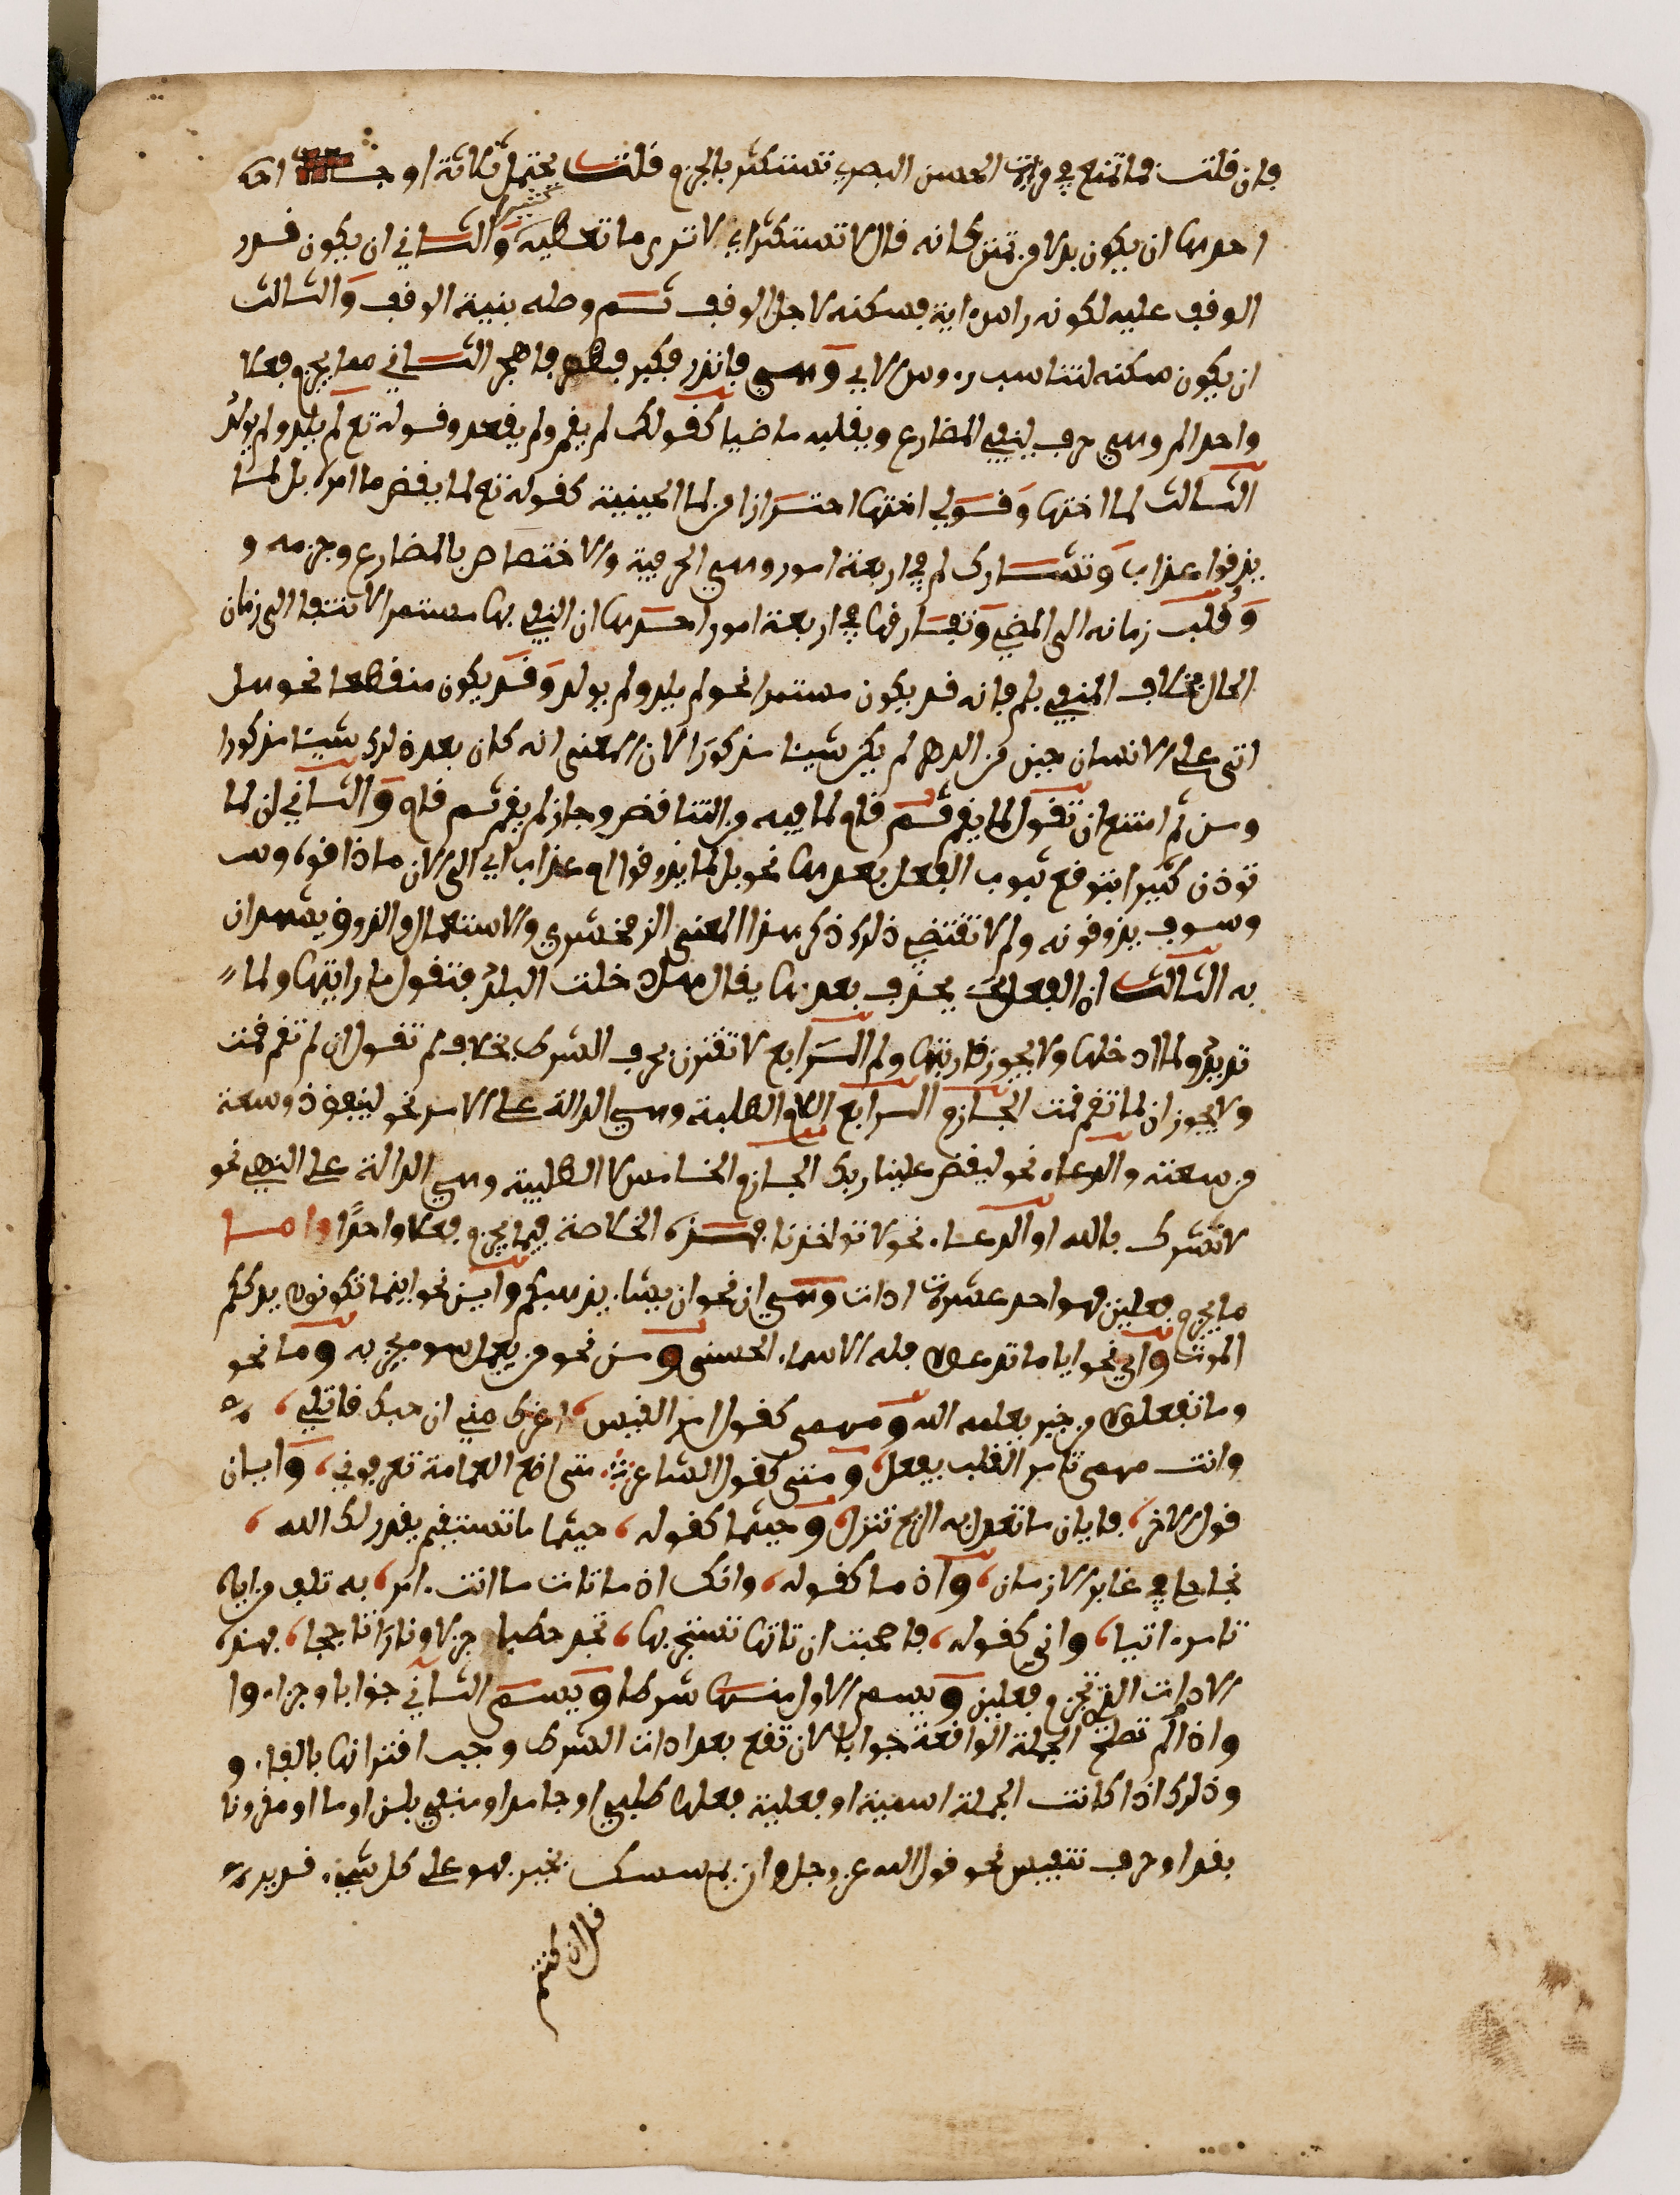 فان قلت فما تصنع في قراءة الحسن البصري تستكثر بالجزم قلت يحتمل ثلاثة اوجه
احدها ان يكون بدلا من تمنن كانه قال لا تستكثر اي لا ترى ما تعطيه كثيرا والثاني ان يكون قدر
الوقف عليه لكونه راس اية فسكنه لاجل الوقف ثم وصله بنية الوقف والثالث
ان يكون سكنه لتناسب روس الاي وهي فانذر فكبر فطهر فاهجر الثاني مما يجزم فعلا
واحدا لم وهي حرف ينفي المضارع ويقلبه ماضيا كقولك لم يقم ولم يقعد وقوله تع لم يلد ولم يولد
الثالث لما اختها وقولي اختها احترازا من لما الحينية كقوله تع لما يقض ما امره بل لما
يذوقوا عذاب وتشارك لم في اربعة امور وهي الحرفية والاختصاص بالمضارع وجزمه و
وقلب زمانه الى المضي وتفارقها في اربعة امور احدها ان النفي بها مستمر الانتفا الى زمان
الحال بخلاف المنفي بلم فانه قد يكون مستمرا نحو لم يلد ولم يولد وقد يكون منقطعا نحو هل
اتى على الانسان حين من الدهر لم يكن شيئا مذكورا لان المعنى انه كان بعد ذلك شيئا مذكورا
ومن ثم امتنع ان تقول لما يقم ثم قام لما فيه من التناقض وجاز لم يقم ثم قام والثاني ان لما
توذن كثيرا بتوقع ثبوت الفعل بعدها نحو بل لما يذوقوا عذاب اي الى الان ما ذاقوه وس
وسوف يذوقونه ولم لا تقتضي ذلك ذكر هذا المعنى الزمخشري والاستعمال والذوق يشهدان
به الثالث ان الفعل يحذف بعدها يقال هل دخلت البلد فتقول قاربتها ولما
تريد ولما ادخلها ولا يجوز قاربتها ولم الرابع لا تقترن بحرف الشرط بخلاف لم تقول ان لم تقم قمت
ولا يجوز ان لما تقم قمت الجازم الرابع اللام الطلبية وهي الدالة على الامر نحو لينفق ذو سعة
من سعته والدعاء نحو ليقض علينا ربك الجازم الخامس لا الطلبية وهي الدالة على النهي نحو
لا تشرك بالله او الدعاء نحو لا تواخذنا فهذه الخلاصة فيما يجزم فعلا واحدا واما
ما يجزم فعلين فهو احد عشرة ادات وهي ان نحو ان يشا يذهبكم واين نحو اينما تكونوا يدرككم
الموت واي نحو ايا ما تدعوا فله الاسماء الحسنى ومن نحو من يعمل سوءا يجز به وما نحو
وما تفعلوا من خير يعلمه الله ومهمى كقول امر القيس اغرك مني ان حبك قاتلي
وانت مهمى تامر القلب يفعل ومتى كقول الشاعر متى اضع العمامة تعرفوني وايان
قول الاخر فايان ما تعدل به الريح تنزل وحيثما كقوله حيثما ما تستقم يقدر لك الله
نجاحا في غابر الازمان واذ ما كقوله وانك اذ ما تات ما انت امر به تلف من اياه
تامره اتيا وانى كقوله فاصحبت ان تاتها تستجر بها تجد حطبا جزلا ونارا تاججا فهذه
الادات التي تجزم فعلين ويسمى الاول منها شرطا ويسمى الثاني جوابا وجزاء وا
واذا لم تصلح الجملة الواقعة جوابا لان تقع بعد ادات الشرط وجب اقترانها بالفاء و
وذلك اذا كانت الجملة اسمية او فعلية فعلها طلبي او جامد او منفي بلن او ما او مقرونا
بقد او حرف تنفيس نحو قول الله عز وجل وان يمسسك بخير فهو على كل شيء قدير
قل ان كنتم